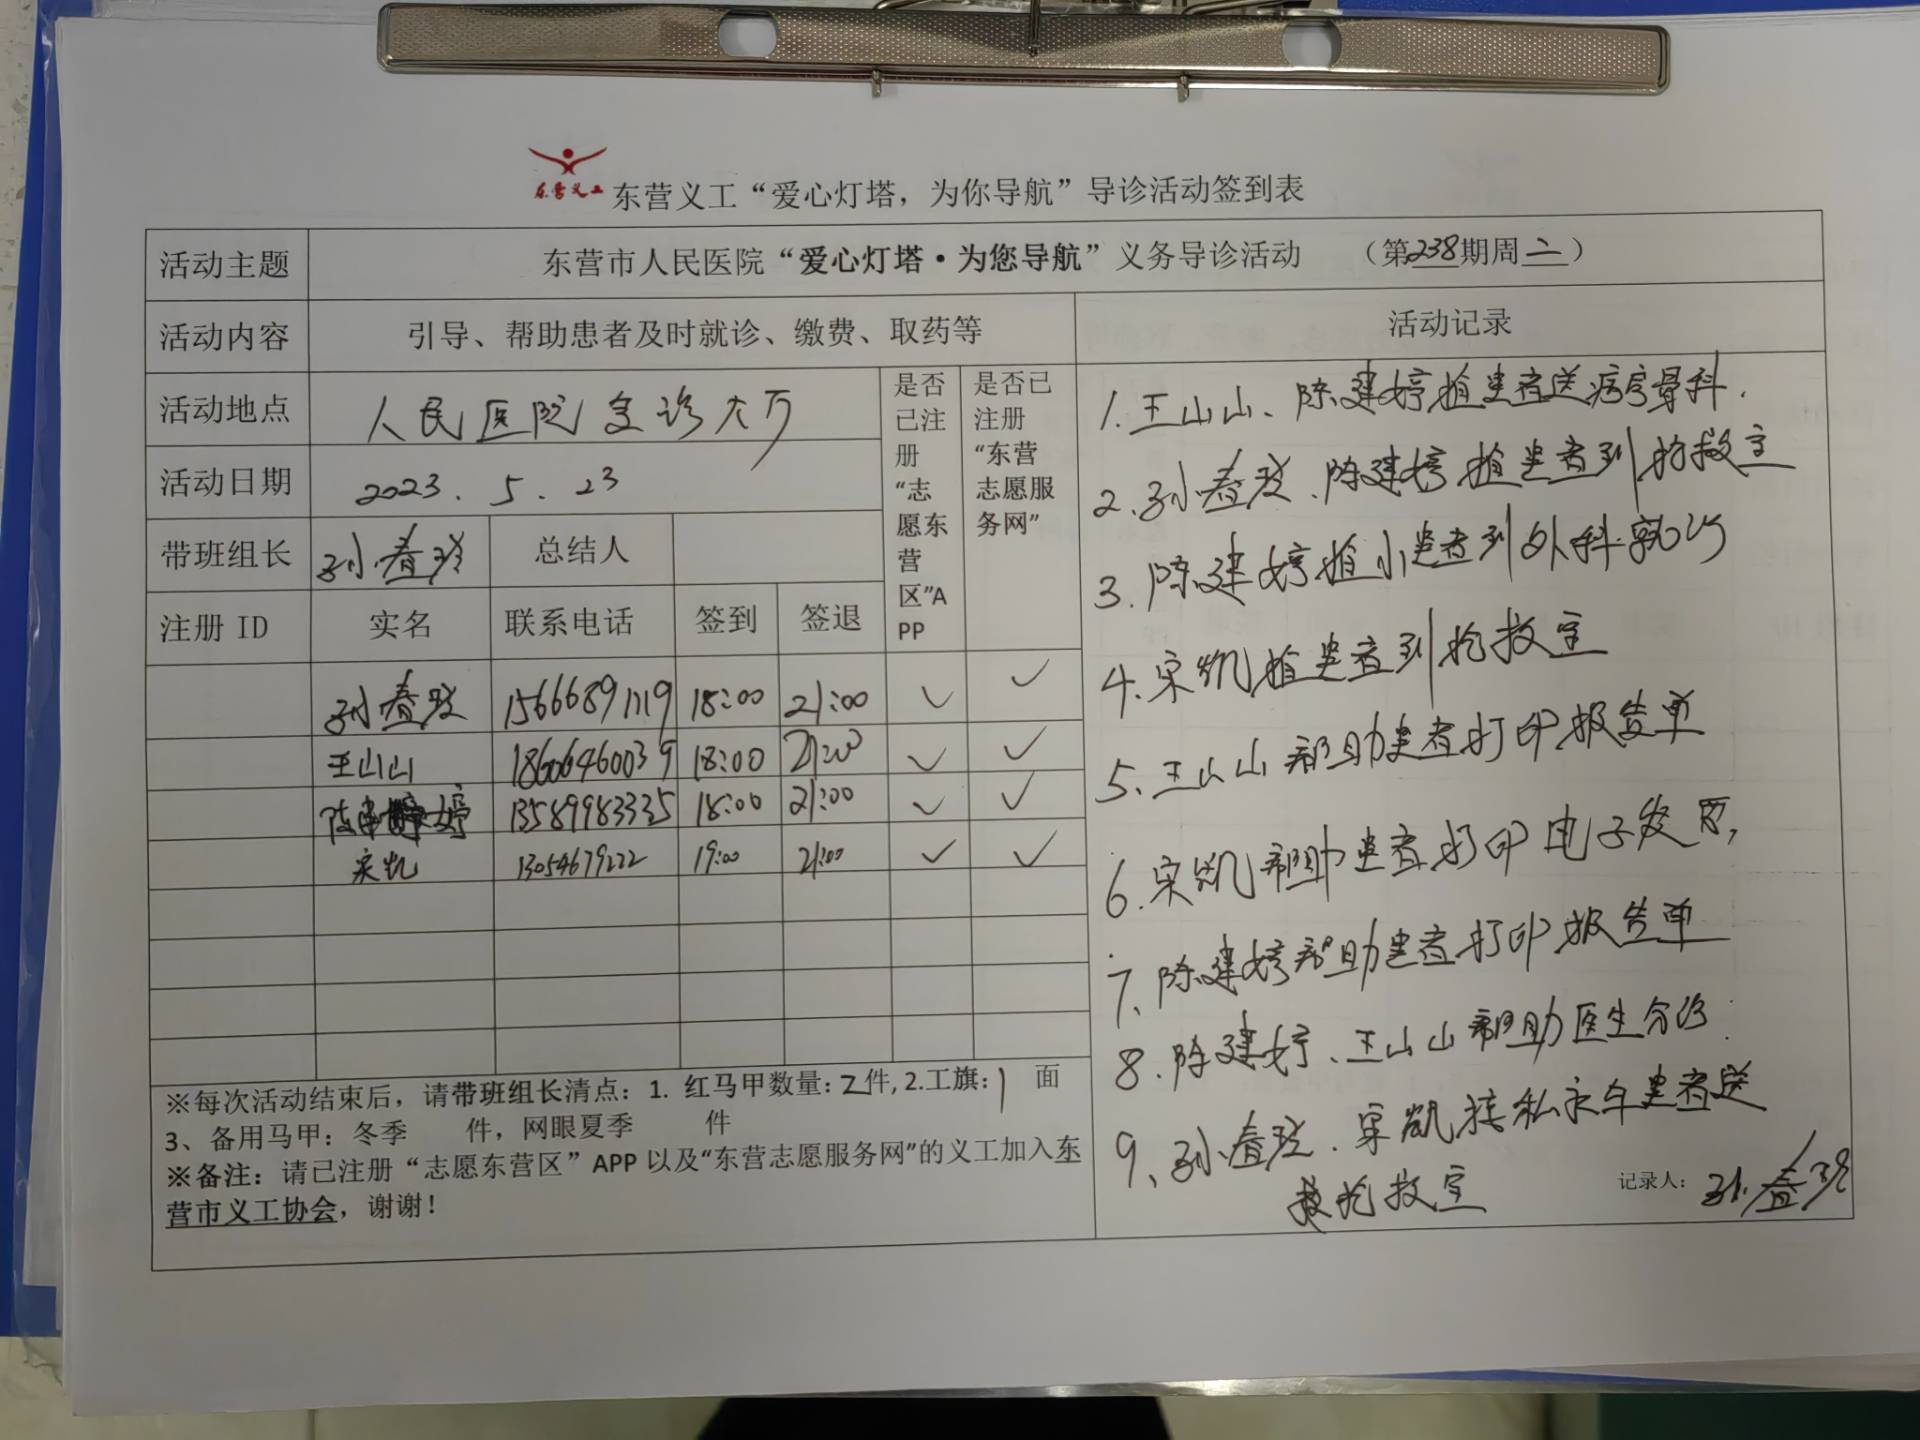 东营义工 东营义工“爱心灯塔，为你导航”导诊活动签到表
活动主题 东营市人民医院“爱心灯塔·为您导航”义务导诊活动 （第238期周二）
活动内容 引导、帮助患者及时就诊、缴费、取药等 活动记录
活动地点 人民医院急诊大厅
活动日期 2023.5.23
带班组长 孙春玲 总结人
是否已注册“志愿东营区”APP
是否已注册“东营志愿服务网”
注册 ID 实名 联系电话 签到 签退
孙春玲 15666891119 18:00 21:00 ✓ ✓
王山山 18606460039 18:00 21:00 ✓ ✓
陈建婷 13589983335 18:00 21:00 ✓ ✓
宋凯 13054679222 19:00 21:00 ✓ ✓
※每次活动结束后，请带班组长清点：1. 红马甲数量：2件, 2.工旗：1 面
3、备用马甲：冬季 件，网眼夏季 件
※备注：请已注册“志愿东营区”APP 以及“东营志愿服务网”的义工加入东
营市义工协会，谢谢！
1.王山山、陈建婷推患者送病房骨科.
2.孙春玲.陈建婷推患者到抢救室
3.陈建婷推小患者到外科就诊
4.宋凯推患者到抢救室
5.王山山帮助患者打印报告单
6.宋凯帮助患者打印电子发票,
7、陈建婷帮助患者打印报告单
8.陈建婷、王山山帮助医生分诊.
9、孙春玲.宋凯接私家车患者送
抢救室
记录人：孙春玲